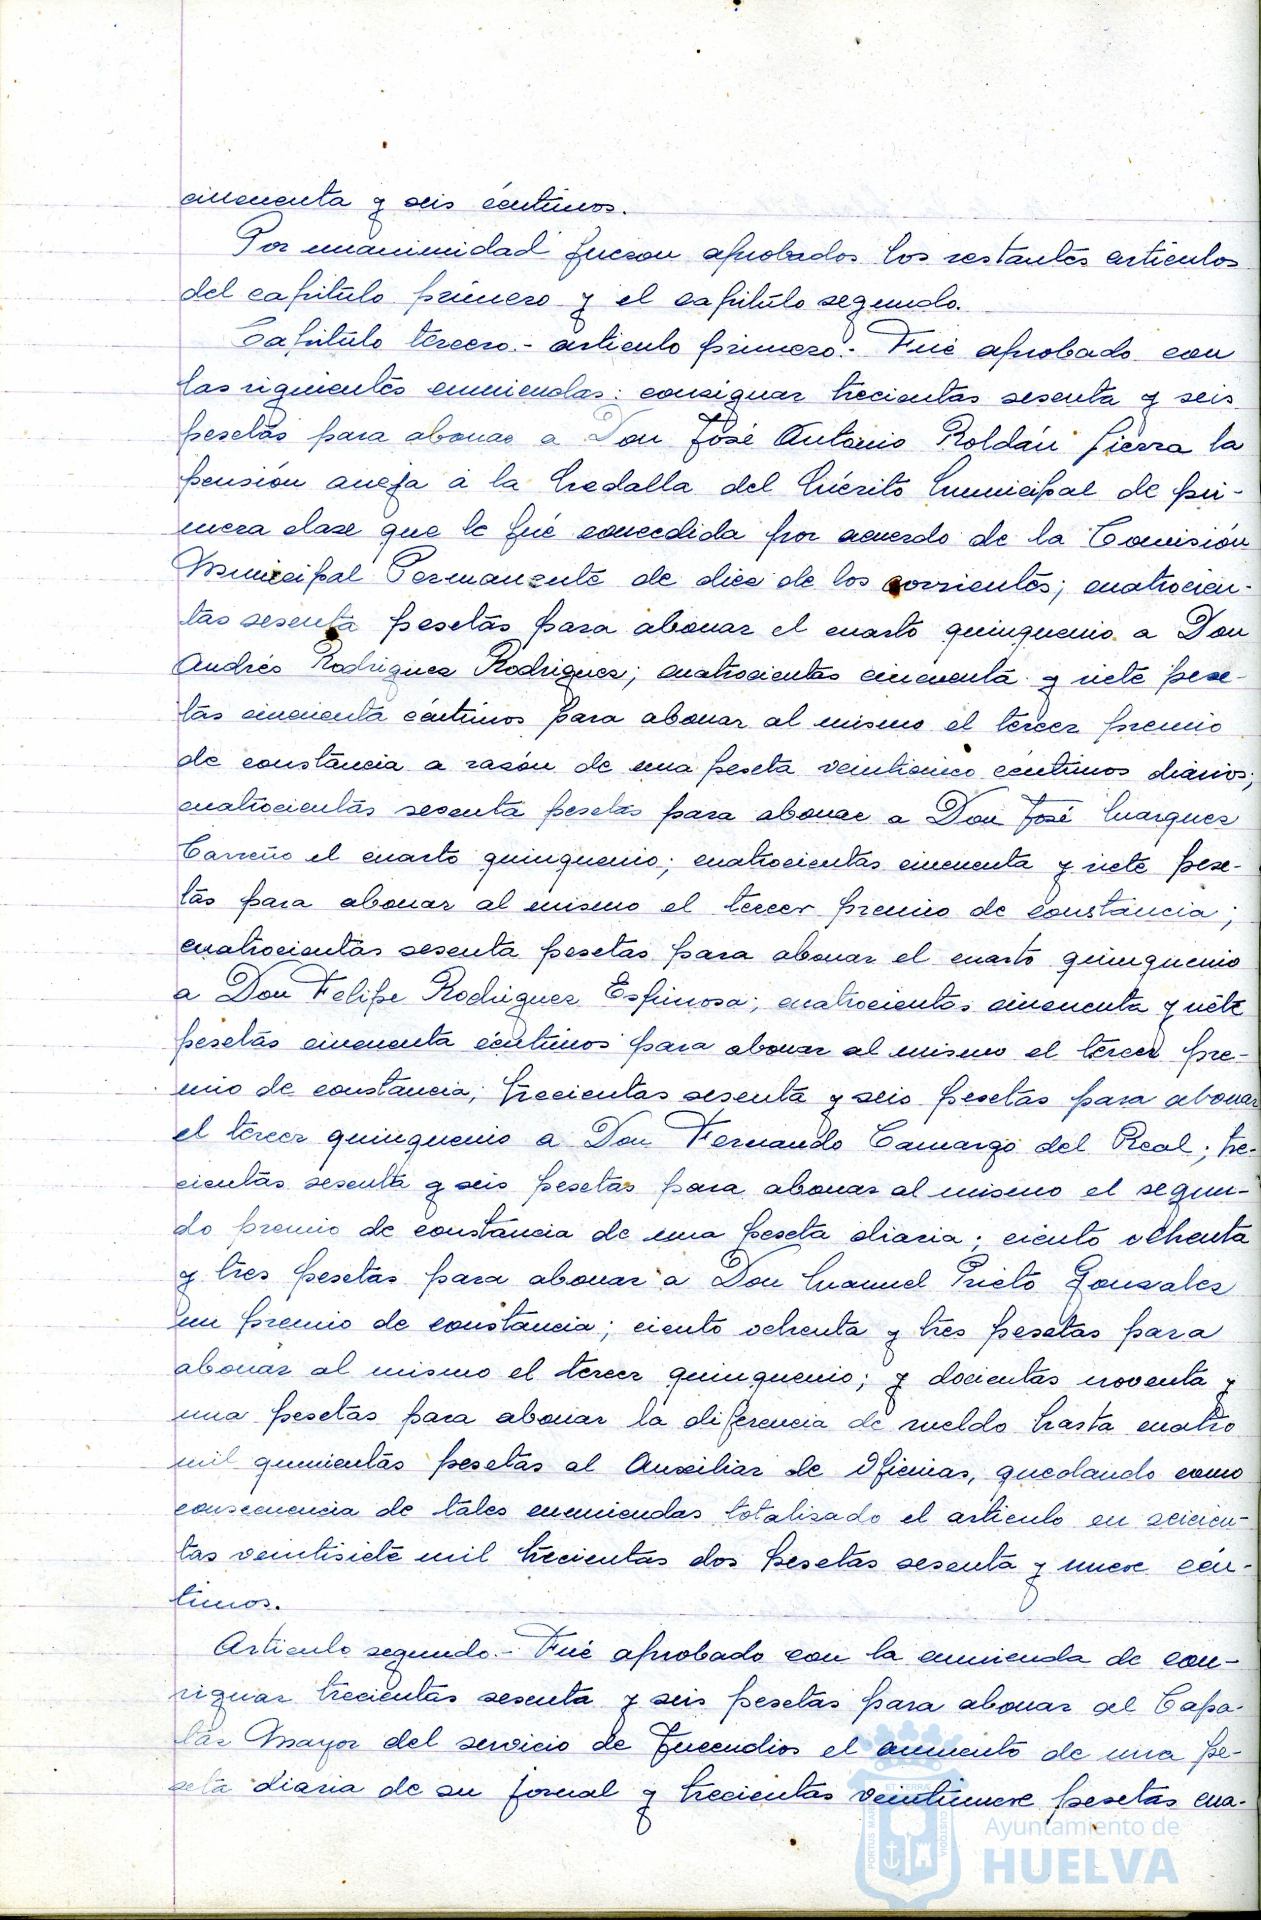 cincuenta y seis céntimos.
Por unanimidad fueron aprobados los restantes artículos
del capítulo primero y el capítulo segundo.
Capítulo tercero.- artículo primero.- Fué aprobado con
las siguientes enmiendas: consignar trecientas sesenta y seis
pesetas para abonar a Don José Antonio Roldán Sierra la
pensión aneja a la Medalla del Mérito Municipal de pri-
mera clase que le fué concedida por acuerdo de la Comisión
Municipal Permanente de diez de los corrientes; cuatrocien-
tas sesenta pesetas para abonar el cuarto quinquenio a Don
Andrés Rodriguez Rodriguez; cuatrocientas cincuenta y siete pese-
tas cincuenta céntimos para abonar al mismo el tercer premio
de constancia a razón de una peseta veinticinco céntimos diarios;
cuatrocientas sesenta pesetas para abonar a Don José Marquez
Carreño el cuarto quinquenio; cuatrocientas cincuenta y siete pese-
tas para abonar al mismo el tercer premio de constancia;
cuatrocientas sesenta pesetas para abonar el cuarto quinquenio
a Don Felipe Rodriguez Espinosa; cuatrocientas cincuenta y siete
pesetas cincuenta céntimos para abonar al mismo el tercer pre-
mio de constancia; trecientas sesenta y seis pesetas para abonar
el tercer quinquenio a Don Fernando Camargo del Real; tre-
cientas sesenta y seis pesetas para abonar al mismo el segun-
do premio de constancia de una peseta diaria; ciento ochenta
y tres pesetas para abonar a Don Manuel Prieto Gonzalez
un premio de constancia; ciento ochenta y tres pesetas para
abonar al mismo el tercer quinquenio; y docientas noventa y
una pesetas para abonar la diferencia de sueldo hasta cuatro
mil quinientas pesetas al Auxiliar de Oficinas, quedando como
consecuencia de tales enmiendas totalizado el artículo en seiscien-
tas veintisiete mil trecientas dos pesetas sesenta y nueve cén-
timos.
Artículo segundo.- Fué aprobado con la enmienda de con-
signar trecientas sesenta y seis pesetas para abonar al Capa-
táz Mayor del servicio de Incendios el aumento de una pe-
seta diaria de su jornal y trecientas veintinueve pesetas cua-
Ayuntamiento de
HUELVA